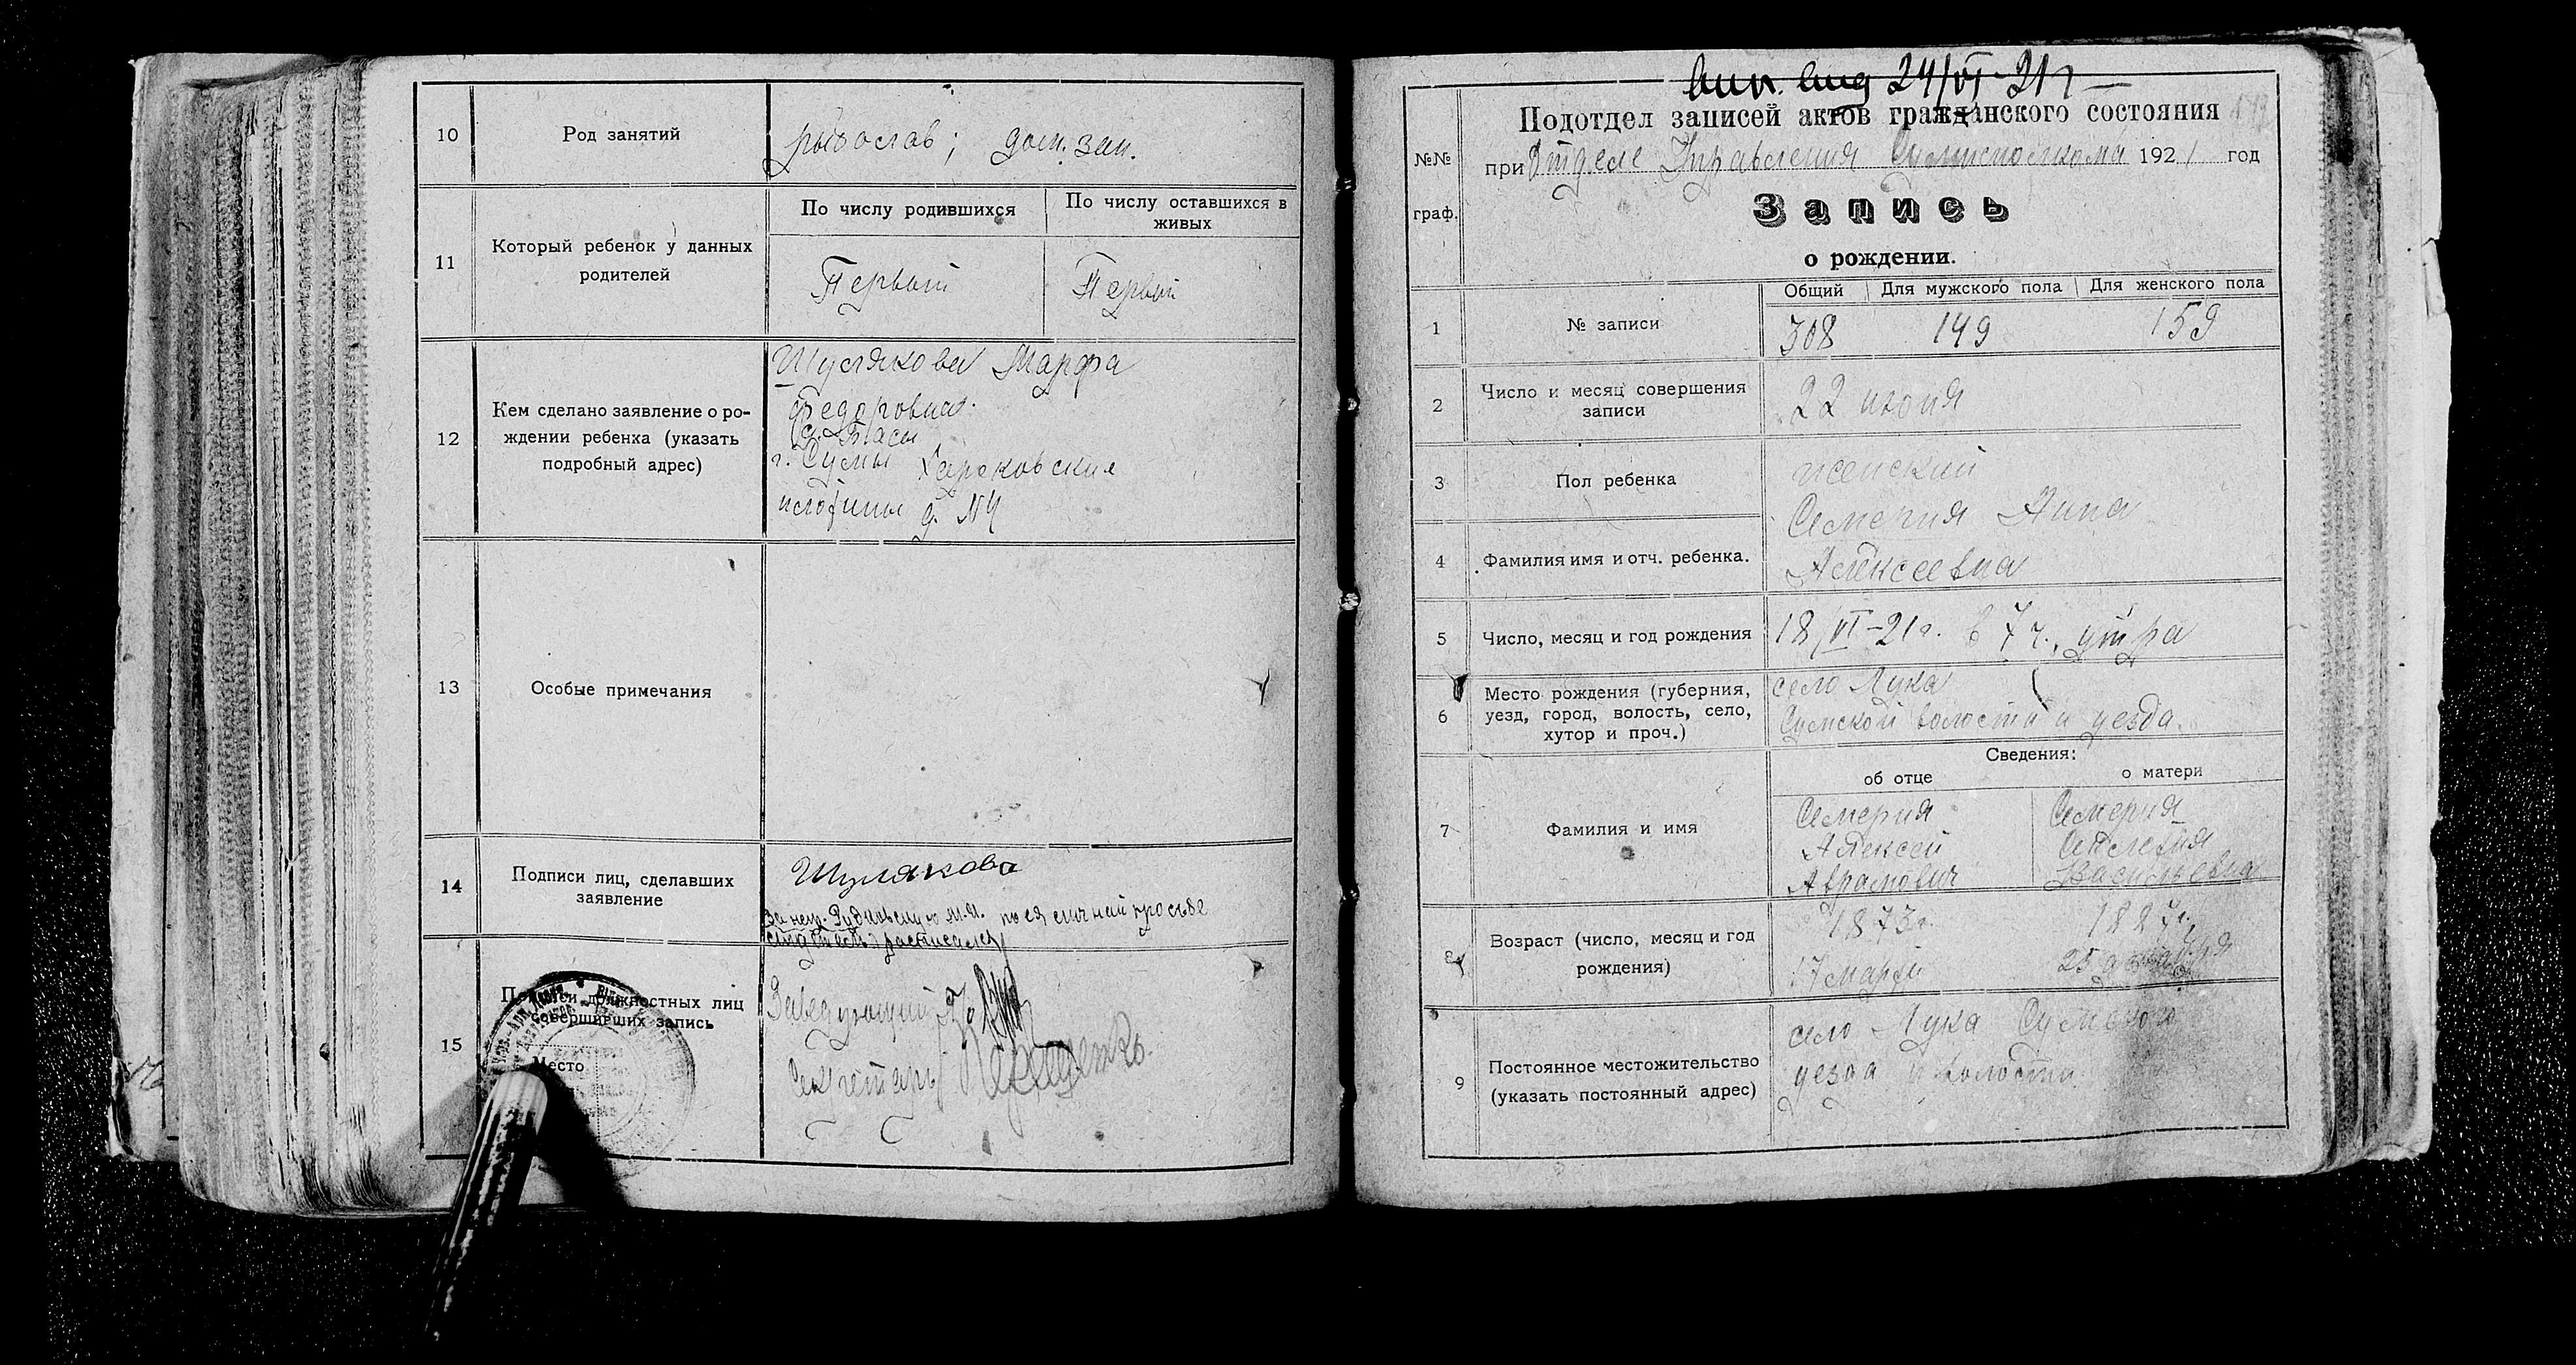 10
Род занятий
дом. зан.
11
Который ребенок у данных
родителей
По числу родившихся
По числу оставшихся в
живых
Первый
Первый
12
Кем сделано заявление о ро-
ждении ребенка (указать
подробный адрес)
Марфа
Федоровна
г. Сумы Харьковская
д. №4
13
Особые примечания
14
Подписи лиц, сделавших
заявление
Шулякова
15
должностных лиц
совершивших запись
Место
Заведующий
Секретарь
24/VI-21 г
№№
граф.
Подотдел записей актов гражданского состояния
при Отделе Управления 1921 год
Запись
о рождении.
1
№ записи
Общий
Для мужского пола
Для женского пола
308
149
159
2
Число и месяц совершения
записи
22 июня
3
Пол ребенка
женский
4
Фамилия имя и отч. ребенка.
Семерня Анна
Алексеевна
5
Число, месяц и год рождения
18/VI-21 г. в 7 ч. утра
6
Место рождения (губерния,
уезд, город, волость, село,
хутор и проч.)
село Лука
Сумской волости и уезда.
Сведения:
об отце
о матери
7
Фамилия и имя
Семерня
Алексей
Аврамович
Семерня
Васильевна
8
Возраст (число, месяц и год
рождения)
1873 г.
17 марта
25
9
Постоянное местожительство
(указать постоянный адрес)
село Лука Сумского
уезда и волости